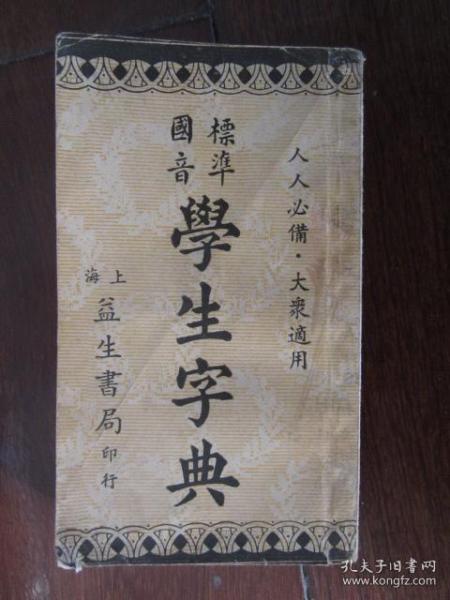 人人必備·大衆適用
標準
國音
學生字典
上海
益生書局印行
孔夫子旧书网
www.kongfz.com